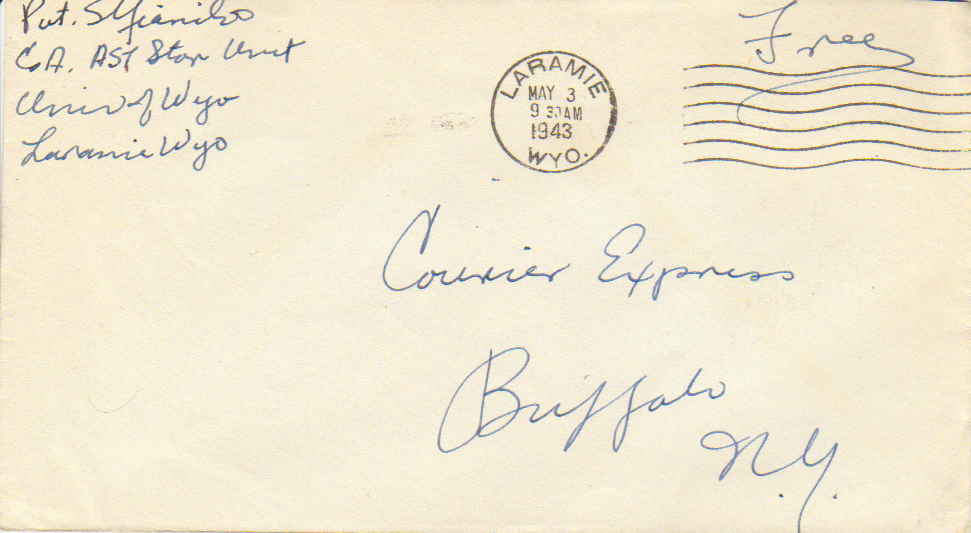 Pvt. S
Co A. AST Star Unit
Univ of Wyo
Laramie Wyo
Free
LARAMIE
MAY 3
9 30 AM
1943
WYO.
Courier Express
Buffalo
N.Y.